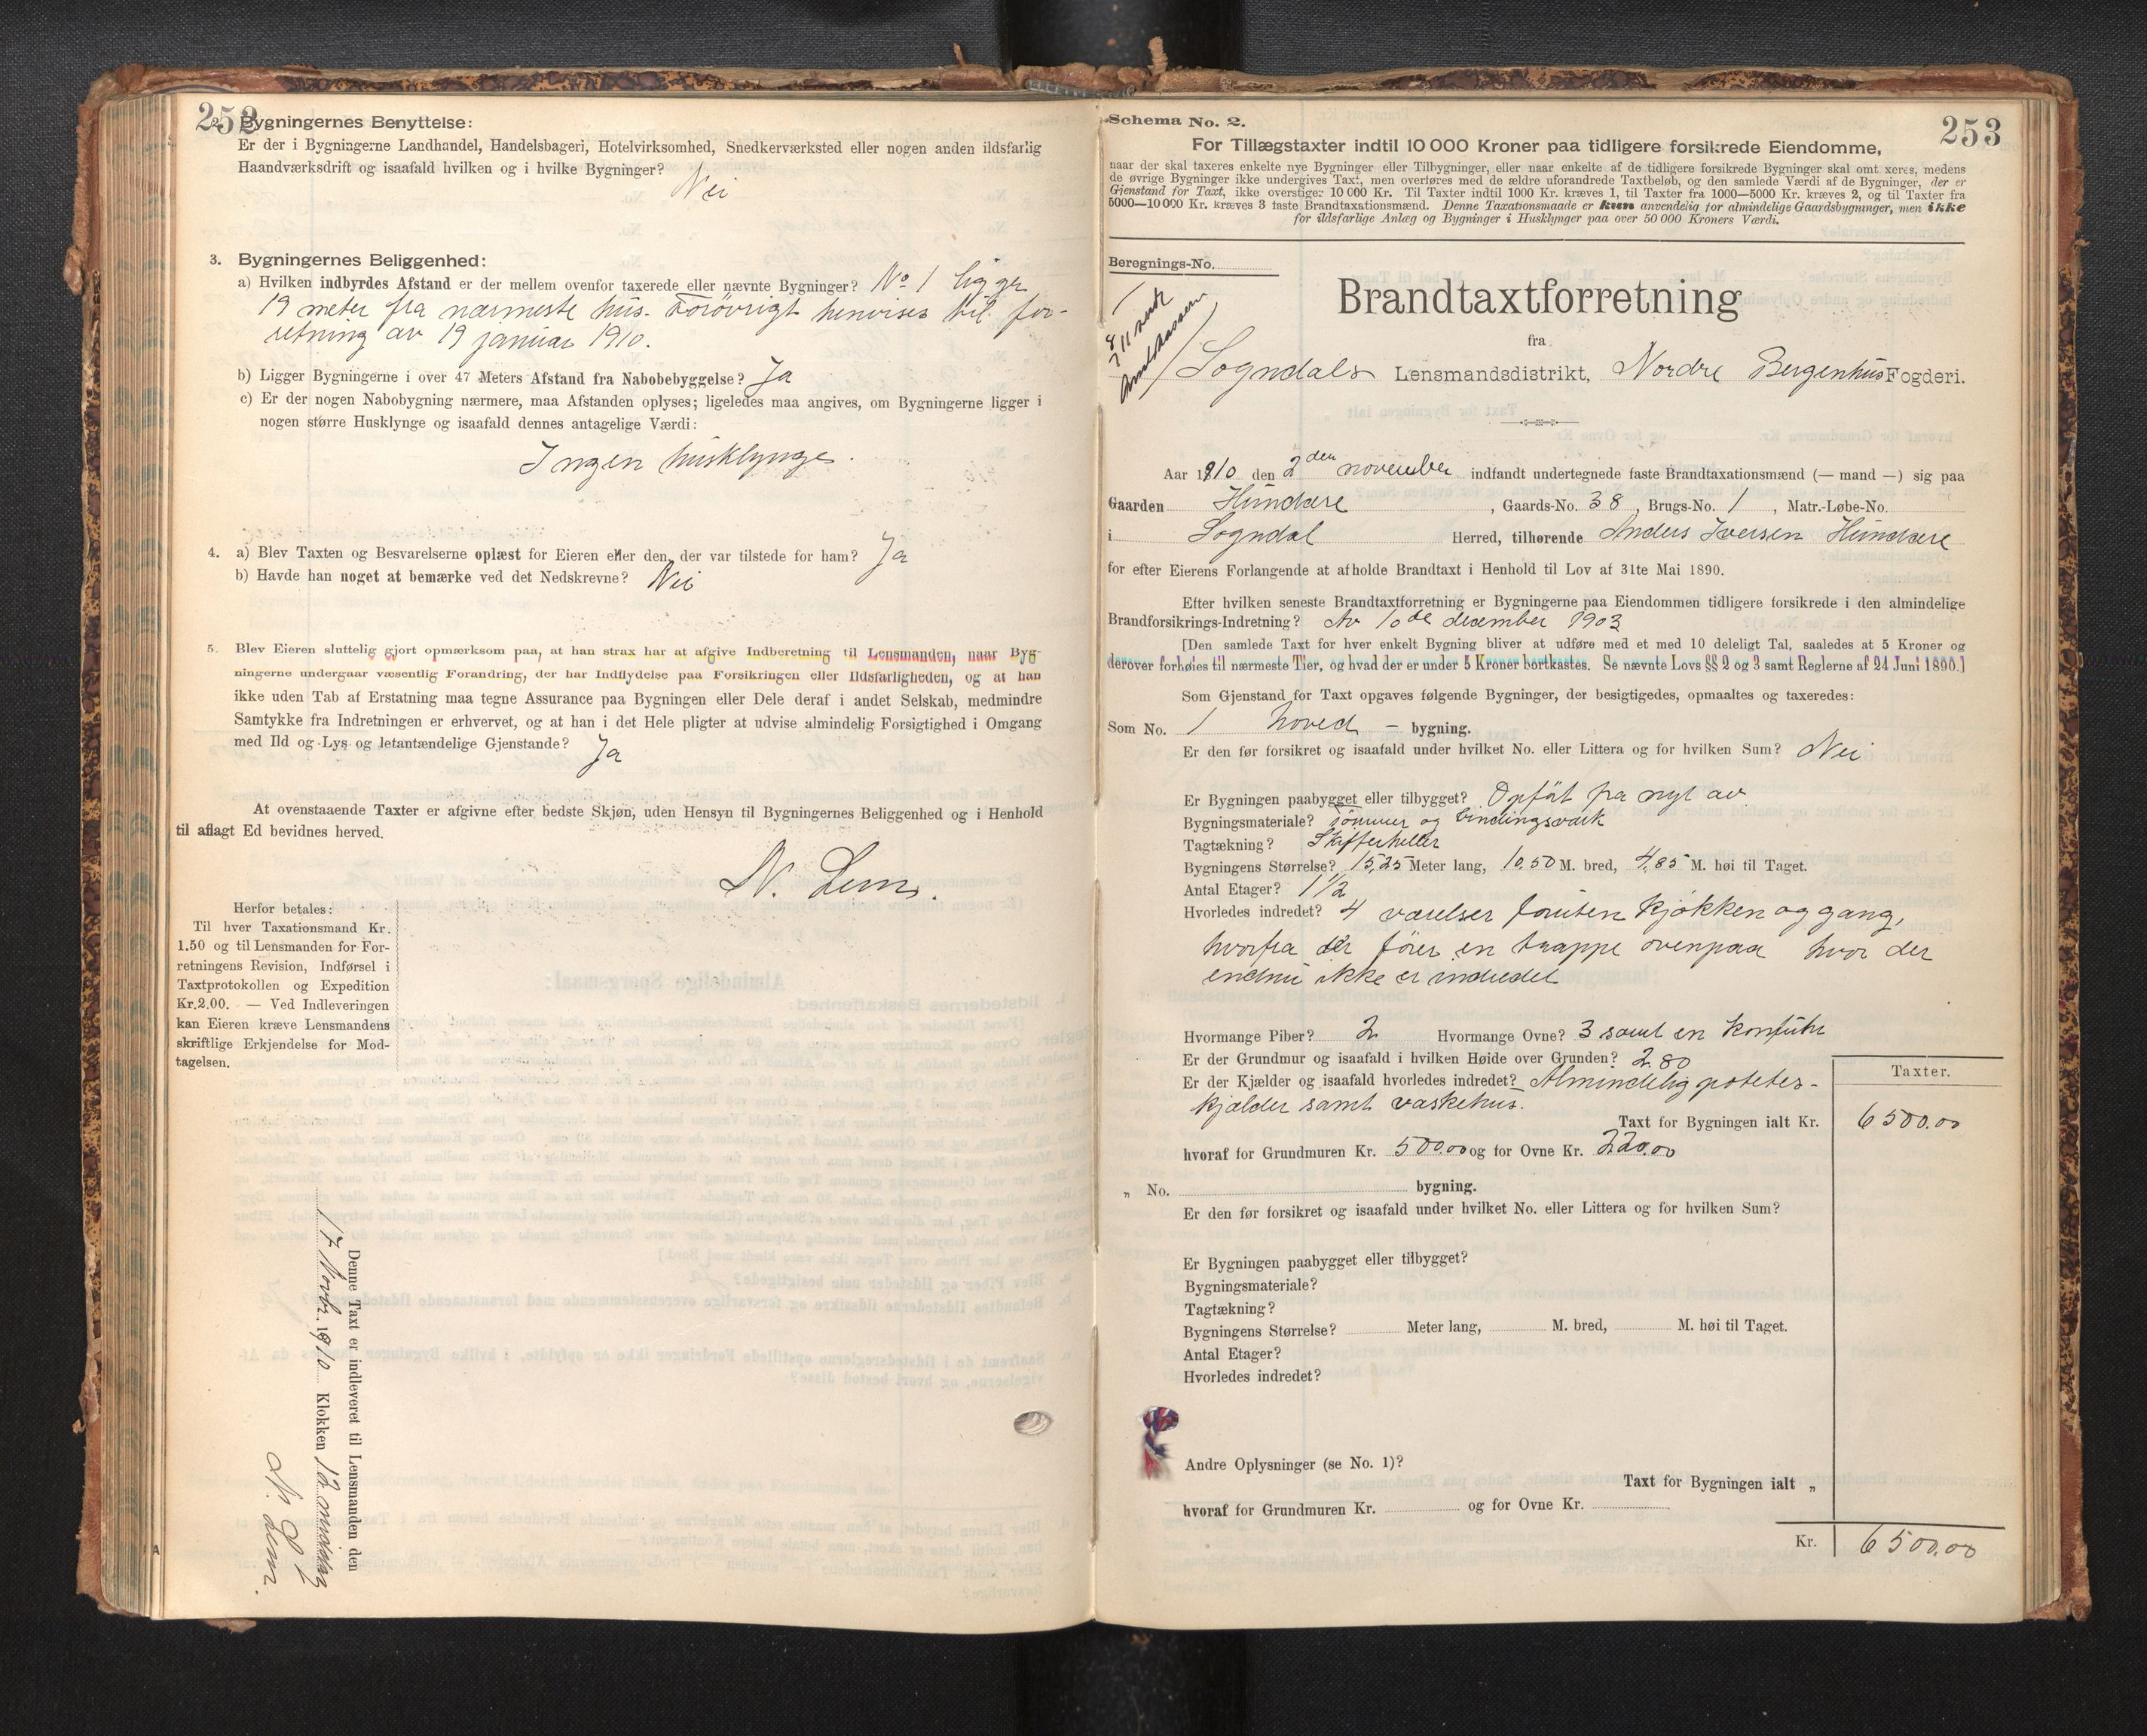 252
2. Bygningernes Benyttelse:
Er der i Bygningerne Landhandel, Handelsbageri, Hotelvirksomhed, Snedkerværksted eller nogen anden ildsfarlig
Haandværksdrift og isaafald hvilken og i hvilke Bygninger?
Nei
3. Bygningernes Beliggenhed:
a) Hvilken indbyrdes Afstand er der mellem ovenfor taxerede eller nævnte Bygninger? No 1 ligger
19 meter fra nærmeste hus. Forøvrigt henvises til for-
retning av 19 januar 1910.
b) Ligger Bygningerne i over 47 Meters Afstand fra Nabobebyggelse? Ja
c) Er der nogen Nabobygning nærmere, maa Afstanden oplyses; ligeledes maa angives, om Bygningerne ligger i
nogen større Husklynge og isaafald dennes antagelige Værdi:
Ingen husklynge.
4. a) Blev Taxten og Besvarelserne oplæst for Eieren eller den, der var tilstede for ham? Ja
b) Havde han noget at bemærke ved det Nedskrevne? Nei
5. Blev Eieren sluttelig gjort opmærksom paa, at han strax har at afgive Indberetning til Lensmanden, naar Byg-
ningerne undergaar væsentlig Forandring, der har Indflydelse paa Forsikringen eller Ildsfarligheden, og at han
ikke uden Tab af Erstatning maa tegne Assurance paa Bygningen eller Dele deraf i andet Selskab, medmindre
Samtykke fra Indretningen er erhvervet, og at han i det Hele pligter at udvise almindelig Forsigtighed i Omgang
med Ild og Lys og letantændelige Gjenstande? Ja
At ovenstaaende Taxter er afgivne efter bedste Skjøn, uden Hensyn til Bygningernes Beliggenhed og i Henhold
til aflagt Ed bevidnes herved.
N. Lem.
Herfor betales:
Til hver Taxationsmand Kr.
1.50 og til Lensmanden for For-
retningens Revision, Indførsel i
Taxtprotokollen og Expedition
Kr.2.00. — Ved Indleveringen
kan Eieren kræve Lensmandens
skriftlige Erkjendelse for Mod-
tagelsen.
Denne Taxt er indleveret til Lensmanden den
17 Novbr. 1910 Klokken 12 middag
N. Lem.
253
Schema No. 2.
For Tillægstaxter indtil 10 000 Kroner paa tidligere forsikrede Eiendomme,
naar der skal taxeres enkelte nye Bygninger eller Tilbygninger, eller naar enkelte af de tidligere forsikrede Bygninger skal omtaxeres, medens
de øvrige Bygninger ikke undergives Taxt, men overføres med de ældre uforandrede Taxtbeløb, og den samlede Værdi af de Bygninger, der er
Gjenstand for Taxt, ikke overstiger 10 000 Kr. Til Taxter indtil 1000 Kr. kræves 1, til Taxter fra 1000—5000 Kr. kræves 2, og til Taxter fra
5000—10 000 Kr. kræves 3 faste Brandtaxationsmænd. Denne Taxationsmaade er kun anvendelig for almindelige Gaardsbygninger, men ikke
for ildsfarlige Anlæg og Bygninger i Husklynger paa over 50 000 Kroners Værdi.
Beregnings-No.
Brandtaxtforretning
fra
Sogndals Lensmandsdistrikt, Nordre Bergenhus Fogderi.
Aar 1910 den 2den november indfandt undertegnede faste Brandtaxationsmænd (— mand —) sig paa
Gaarden Hundere, Gaards-No. 38, Brugs-No. 1, Matr.-Løbe-No.
i Sogndal Herred, tilhørende Anders Iversen Hundere
for efter Eierens Forlangende at afholde Brandtaxt i Henhold til Lov af 31te Mai 1890.
Efter hvilken seneste Brandtaxtforretning er Bygningerne paa Eiendommen tidligere forsikrede i den almindelige
Brandforsikrings-Indretning? Av 10de december 1903
[Den samlede Taxt for hver enkelt Bygning bliver at udføre med et med 10 deleligt Tal, saaledes at 5 Kroner og
derover forhøies til nærmeste Tier, og hvad der er under 5 Kroner bortkastes. Se nævnte Lovs §§ 2 og 3 samt Reglerne af 24 Juni 1890.]
Som Gjenstand for Taxt opgaves følgende Bygninger, der besigtigedes, opmaaltes og taxeredes:
Som No. 1 hoved- bygning.
Er den før forsikret og isaafald under hvilket No. eller Littera og for hvilken Sum? Nei
Er Bygningen paabygget eller tilbygget? Opført fra nyt av
Bygningsmateriale? tømmer og bindingsværk
Tagtækning? Skiferheller
Bygningens Størrelse? 15,25 Meter lang, 10,50 M. bred, 4,85 M. høi til Taget.
Antal Etager? 1 1/2
Hvorledes indredet? 4 værelser foruten kjøkken og gang,
hvorfra der fører en trappe ovenpaa hvor der
endnu ikke er indredet
Hvormange Piber? 2 Hvormange Ovne? 3 samt en komfur
Er der Grundmur og isaafald i hvilken Høide over Grunden? 2.80
Er der Kjælder og isaafald hvorledes indredet? Almindelig potetes-
kjælder samt vaskehus.
Taxter.
Taxt for Bygningen ialt Kr. 6500.00
hvoraf for Grundmuren Kr. 500.00 og for Ovne Kr. 220.00
„ No. bygning.
Er den før forsikret og isaafald under hvilket No. eller Littera og for hvilken Sum?
Er Bygningen paabygget eller tilbygget?
Bygningsmateriale?
Tagtækning?
Bygningens Størrelse? Meter lang, M. bred, M. høi til Taget.
Antal Etager?
Hvorledes indredet?
Andre Oplysninger (se No. 1)?
Taxt for Bygningen ialt „
hvoraf for Grundmuren Kr. og for Ovne Kr.
Kr. 6500.00